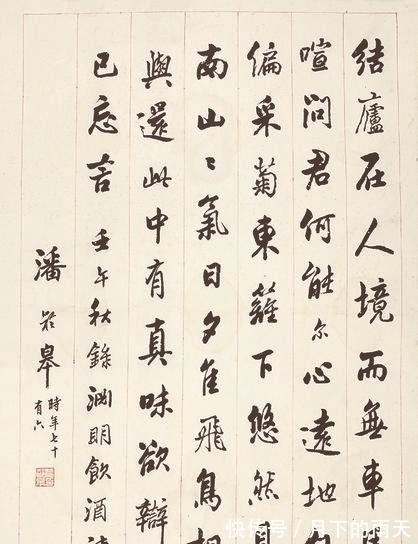 結廬在人境而無車
喧問君何能尔心遠地
偏采菊東籬下悠然
南山〻氣日夕佳飛鳥相
與還此中有真味欲辯
已忘言 壬午秋錄淵明飲酒
潘齡皋 時年七十
有六
快传号/月下的雨天